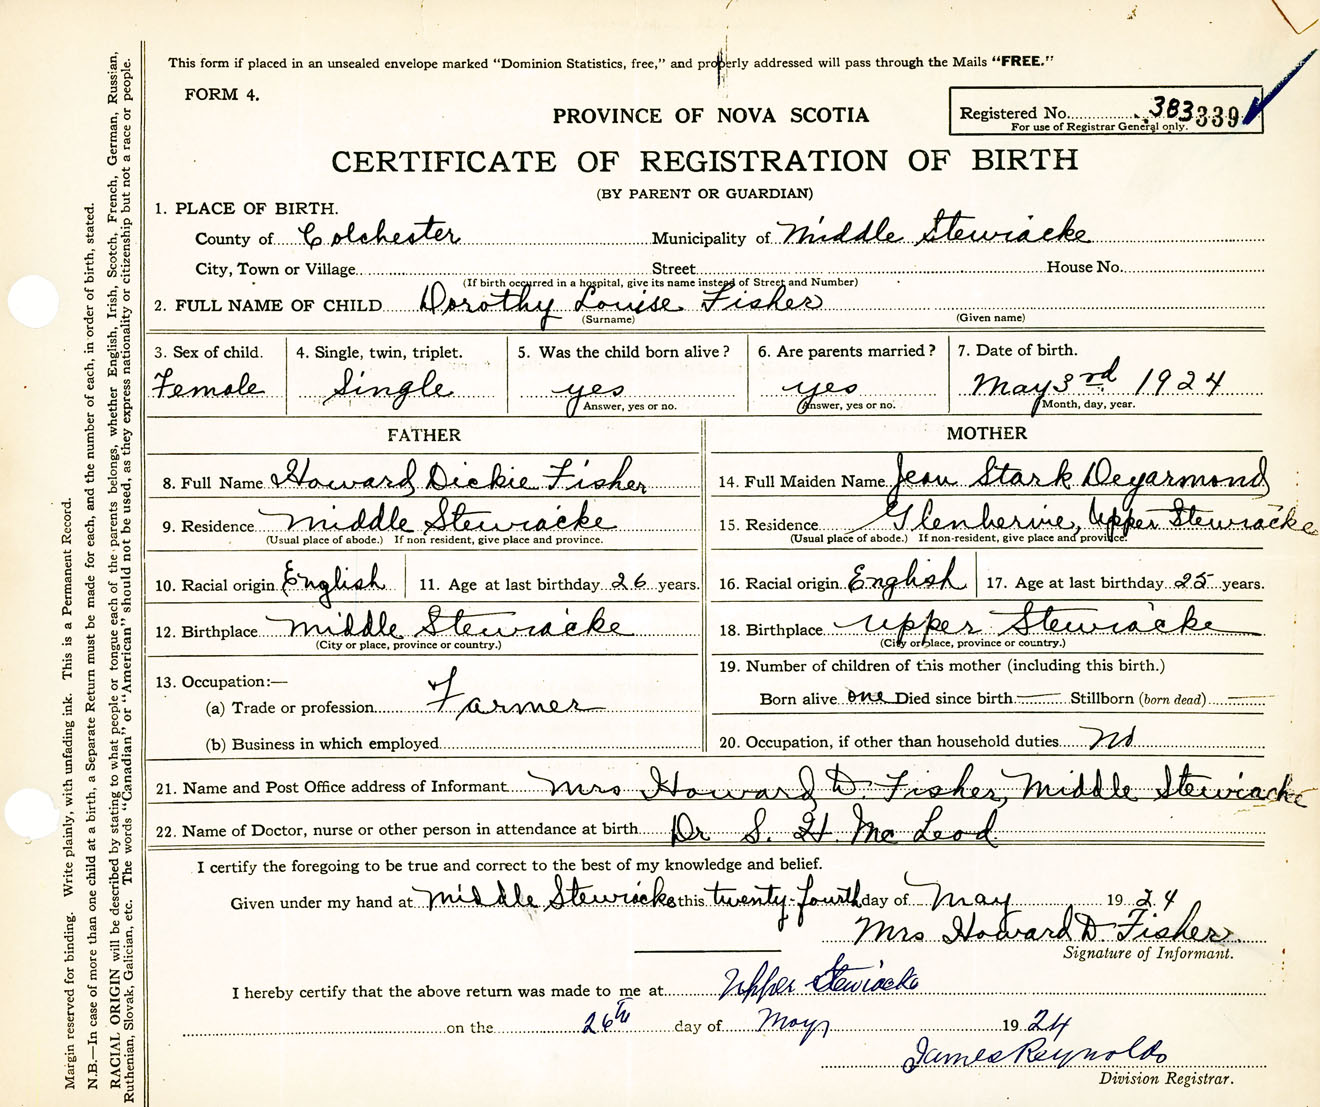 This form if placed in an unsealed envelope marked "Dominion Statistics, free," and properly addressed will pass through the Mails "FREE."
FORM 4.
PROVINCE OF NOVA SCOTIA
Registered No. 383339
For use of Registrar General only.
CERTIFICATE OF REGISTRATION OF BIRTH
(BY PARENT OR GUARDIAN)
1. PLACE OF BIRTH.
County of Colchester Municipality of Middle Stewiacke
City, Town or Village Street House No.
(If birth occurred in a hospital, give its name instead of Street and Number)
2. FULL NAME OF CHILD Dorothy Louise Fisher
(Surname) (Given name)
3. Sex of child. 4. Single, twin, triplet. 5. Was the child born alive? 6. Are parents married? 7. Date of birth.
Female Single yes yes May 3rd 1924
Answer, yes or no. Answer, yes or no. Month, day, year.
FATHER MOTHER
8. Full Name Howard Dickie Fisher 14. Full Maiden Name Jean Stark Deyarmond
9. Residence Middle Stewiacke 15. Residence Glenbervie, Upper Stewiacke
(Usual place of abode.) If non resident, give place and province. (Usual place of abode.) If non-resident, give place and province.
10. Racial origin English 11. Age at last birthday 26 years. 16. Racial origin English 17. Age at last birthday 25 years.
12. Birthplace Middle Stewiacke 18. Birthplace Upper Stewiacke
(City or place, province or country.) (City or place, province or country.)
13. Occupation:— 19. Number of children of this mother (including this birth.)
(a) Trade or profession Farmer Born alive one Died since birth Stillborn (born dead)
(b) Business in which employed 20. Occupation, if other than household duties No
21. Name and Post Office address of Informant Mrs Howard D. Fisher, Middle Stewiacke
22. Name of Doctor, nurse or other person in attendance at birth Dr S. H. McLeod
I certify the foregoing to be true and correct to the best of my knowledge and belief.
Given under my hand at Middle Stewiacke this twenty-fourth day of May 1924
Mrs Howard D. Fisher
Signature of Informant.
I hereby certify that the above return was made to me at Upper Stewiacke
on the 26th day of May 1924
James Reynolds
Division Registrar.
Margin reserved for binding. Write plainly, with unfading ink. This is a Permanent Record.
N.B.—In case of more than one child at a birth, a Separate Return must be made for each, and the number of each, in order of birth, stated.
RACIAL ORIGIN will be described by stating to what people or tongue each of the parents belongs, whether English, Irish, Scotch, French, German, Russian,
Ruthenian, Slovak, Galician, etc. The words "Canadian" or "American" should not be used, as they express nationality or citizenship but not a race or people.